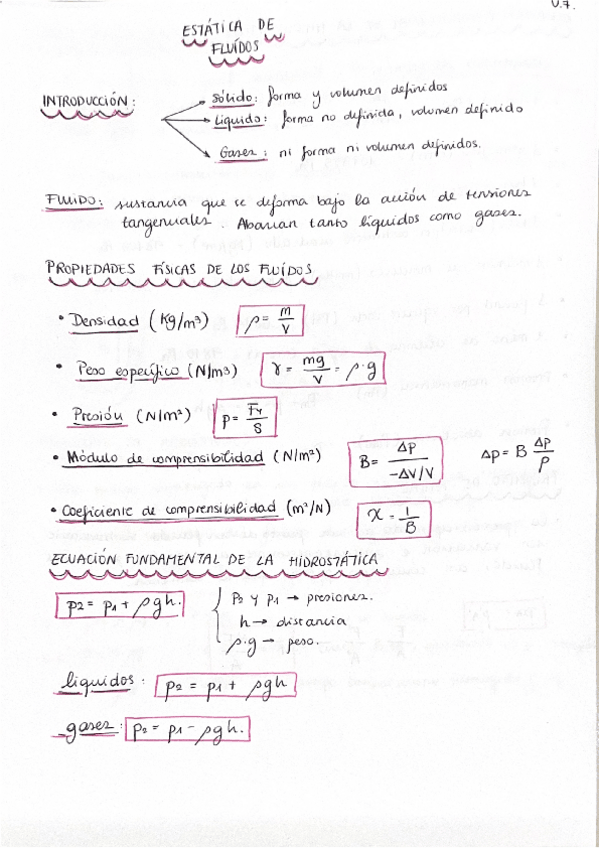 U.7.
ESTÁTICA DE
FLUÍDOS
INTRODUCCIÓN:
Sólido: forma y volumen definidos
Líquido: forma no definida, volumen definido
Gases: ni forma ni volumen definidos.
FLUIDO: sustancia que se deforma bajo la acción de tensiones
tangenciales. Abarcan tanto líquidos como gases.
PROPIEDADES FÍSICAS DE LOS FLUÍDOS
• Densidad (Kg/m³) ρ = m/V
• Peso específico (N/m³) γ = mg/V = ρ·g
• Presión (N/m²) p = F⊥/S
• Módulo de comprensibilidad (N/m²) B = Δp/(-ΔV/V) Δp = B Δρ/ρ
• Coeficiente de comprensibilidad (m²/N) X = 1/B
ECUACIÓN FUNDAMENTAL DE LA HIDROSTÁTICA
p2 = p1 + ρgh. P2 y p1 → presiones.
h → distancia
ρ·g → peso.
líquidos: p2 = p1 + ρgh
gases: p2 = p1 - ρgh.